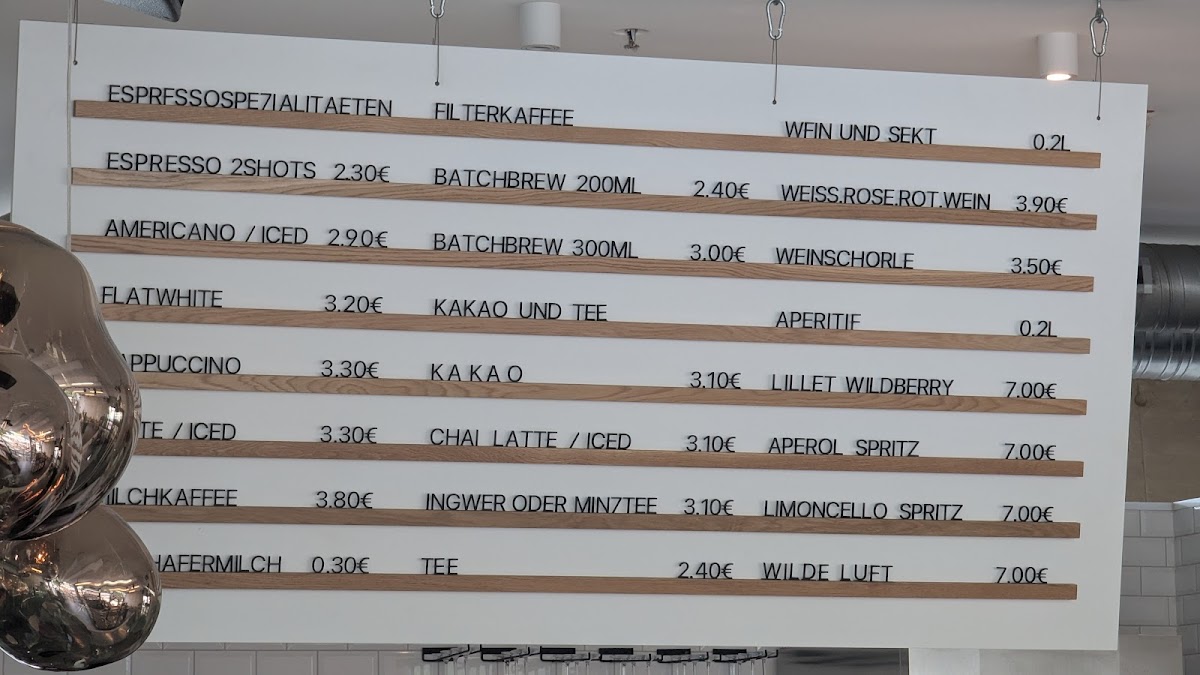 ESPRESSOSPEZIALITAETEN
ESPRESSO 2SHOTS 2.30€
AMERICANO / ICED 2.90€
FLATWHITE 3.20€
APPUCCINO 3.30€
TE / ICED 3.30€
MILCHKAFFEE 3.80€
HAFERMILCH 0.30€
FILTERKAFFEE
BATCHBREW 200ML 2.40€
BATCHBREW 300ML 3.00€
KAKAO UND TEE
KAKAO 3.10€
CHAI LATTE / ICED 3.10€
INGWER ODER MINZTEE 3.10€
TEE 2.40€
WEIN UND SEKT 0.2L
WEISS.ROSE.ROT.WEIN 3.90€
WEINSCHORLE 3.50€
APERITIF 0.2L
LILLET WILDBERRY 7.00€
APEROL SPRITZ 7.00€
LIMONCELLO SPRITZ 7.00€
WILDE LUFT 7.00€